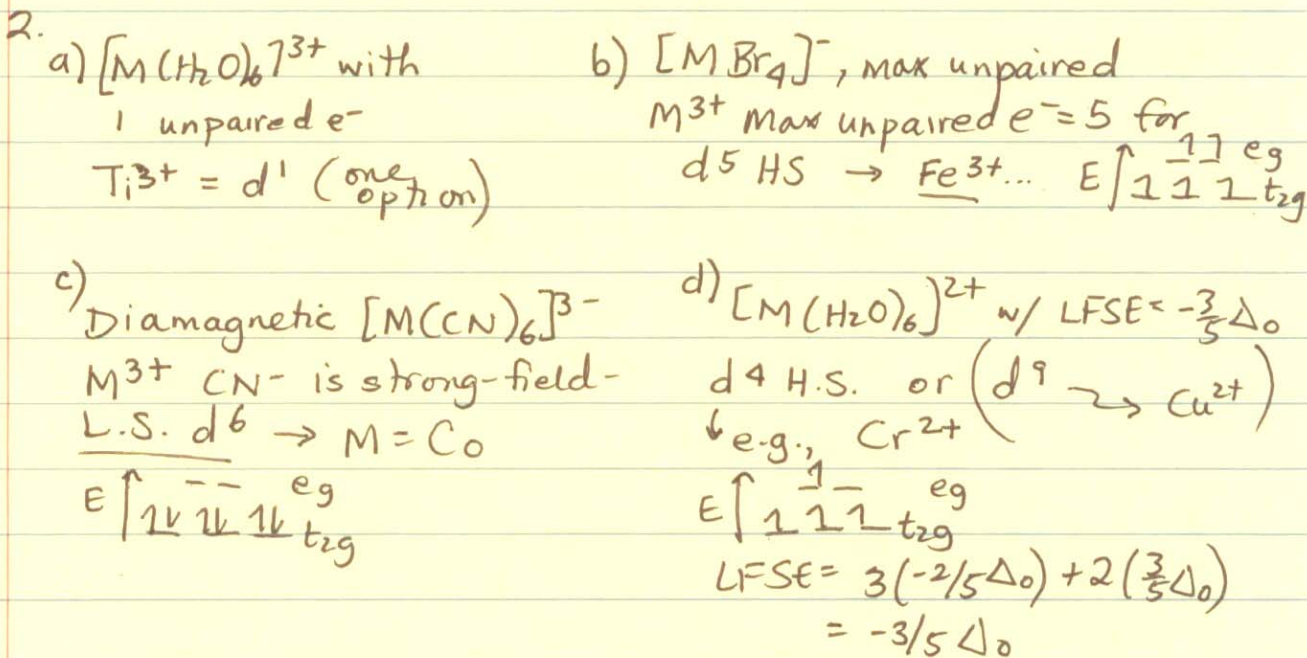 2.
a) [M(H2O)6]3+ with
1 unpaired e-
Ti3+ = d1 (one option)
b) [MBr4]-, max unpaired
M3+ max unpaired e- = 5 for
d5 HS → Fe3+... E↑ 1 1 eg
1 1 1 t2g
c)
Diamagnetic [M(CN)6]3-
M3+ CN- is strong-field-
L.S. d6 → M = Co
E↑ -- eg
1↓ 1↓ 1↓ t2g
d) [M(H2O)6]2+ w/ LFSE = -3/5 Δo
d4 H.S. or (d9 → Cu2+)
↓ e.g., Cr2+
E↑ 1 - eg
1 1 1 t2g
LFSE = 3(-2/5 Δo) + 2(3/5 Δo)
= -3/5 Δo